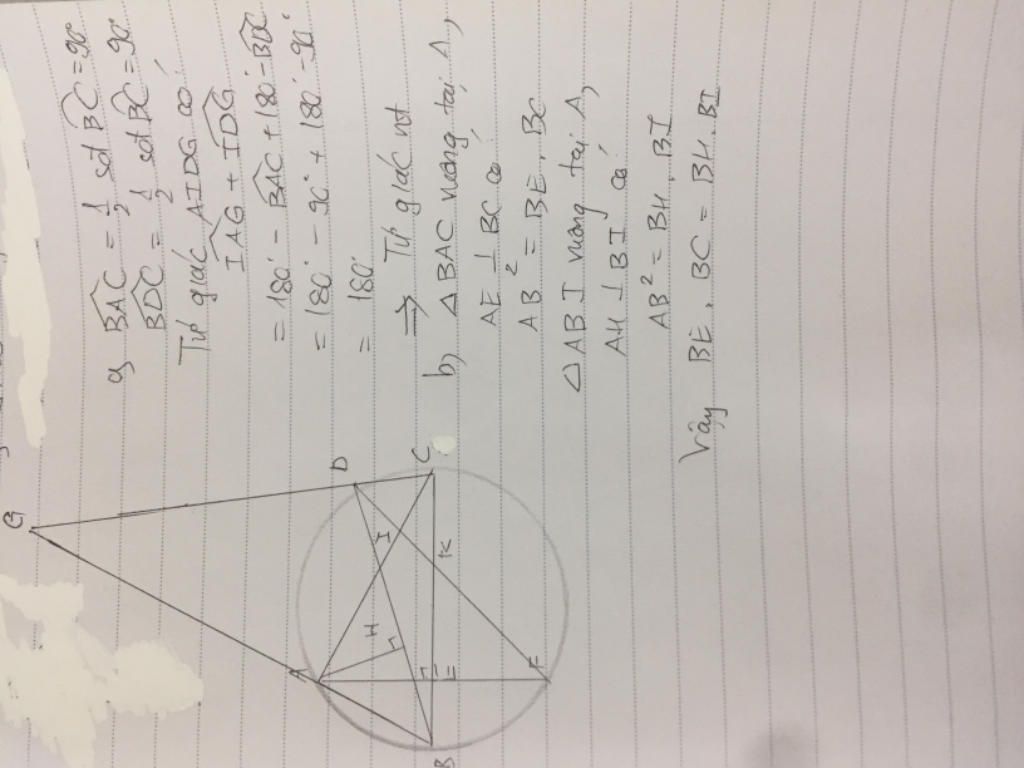 a) BAC = 1/2 sđ BC = 90°
BDC = 1/2 sđ BC = 90°
Tứ giác AIDG có:
IAG + IDG
= 180° - BAC + 180° - BDC
= 180° - 90° + 180° - 90°
= 180°
⇒ Tứ giác nt
b) △BAC vuông tại A,
AE ⊥ BC có:
AB² = BE . BC
△ABI vuông tại A,
AH ⊥ BI có:
AB² = BH . BI
Vậy BE . BC = BH . BI
G
D
A
I
H
C
K
E
B
F